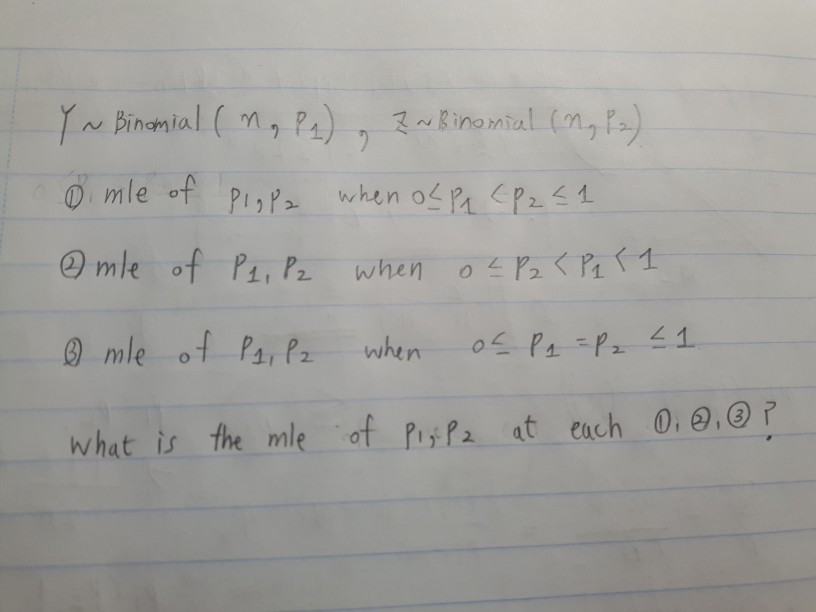 Y ~ Binomial ( n, p1 ) , Z ~ Binomial (n, p2)
① mle of p1, p2 when 0 ≤ p1 < p2 ≤ 1
② mle of p1, p2 when 0 ≤ p2 < p1 < 1
③ mle of p1, p2 when 0 ≤ p1 = p2 ≤ 1
What is the mle of p1, p2 at each ①, ②, ③ ?